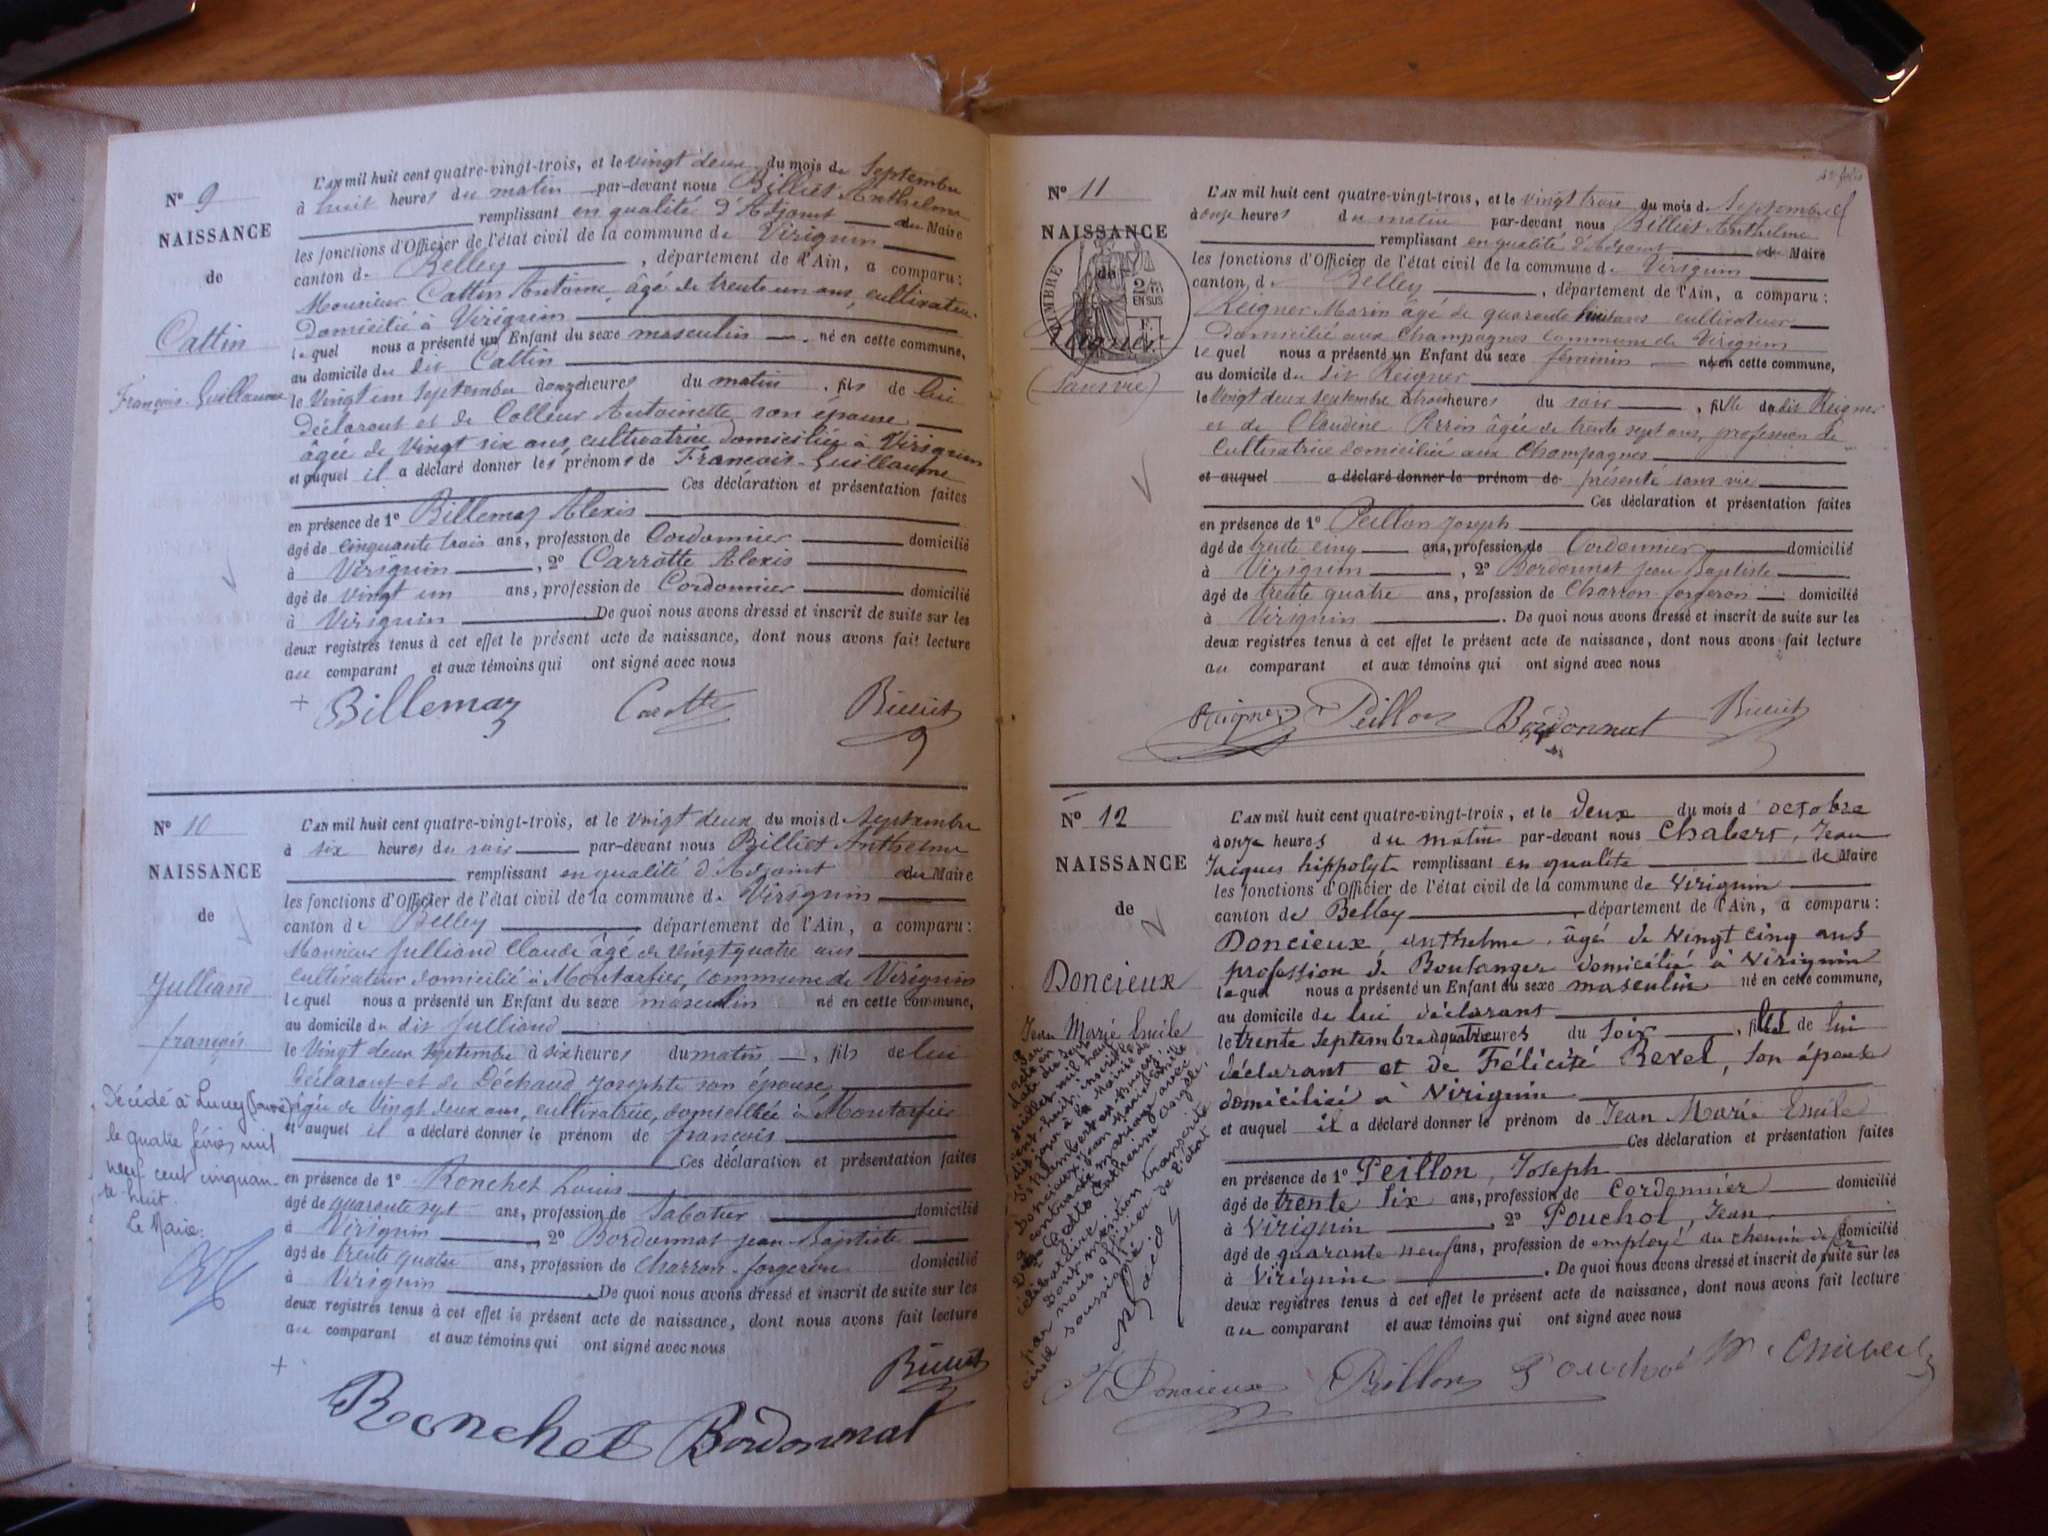 N° 9
NAISSANCE
de
Cattin
François-Guillaume
L'AN mil huit cent quatre-vingt-trois, et le vingt deux du mois de Septembre
à huit heures du matin par-devant nous Billiet Anthelme
remplissant en qualité d'Adjoint du Maire
les fonctions d'Officier de l'état civil de la commune de Virignin
canton de Belley, département de l'Ain, a comparu:
Monsieur Cattin Antoine, âgé de trente un ans, cultivateur
domicilié à Virignin
lequel nous a présenté un Enfant du sexe masculin né en cette commune,
au domicile du dit Cattin
le Vingt un septembre à onze heures du matin, fils de lui
déclarant et de Colleur Antoinette, son épouse
âgée de Vingt six ans, cultivatrice domiciliée à Virignin
et auquel il a déclaré donner les prénoms de François-Guillaume
Ces déclaration et présentation faites
en présence de 1° Billemaz Alexis
âgé de cinquante trois ans, profession de Cordonnier domicilié
à Virignin, 2° Carrotte Alexis
âgé de vingt un ans, profession de Cordonnier domicilié
à Virignin De quoi nous avons dressé et inscrit de suite sur les
deux registres tenus à cet effet le présent acte de naissance, dont nous avons fait lecture
au comparant et aux témoins qui ont signé avec nous
+ Billemaz Carotte Billiet
N° 10
NAISSANCE
de
Julliand
françois
Décédé à Lucey (Savoie)
le quatre février mil
neuf cent cinquan-
te-huit.
Le Maire:
L'AN mil huit cent quatre-vingt-trois, et le vingt deux du mois d Septembre
à six heures du soir par-devant nous Billiet Anthelme
remplissant en qualité d'Adjoint du Maire
les fonctions d'Officier de l'état civil de la commune de Virignin
canton de Belley département de l'Ain, a comparu:
Monsieur Julliand Claude âgé de vingt quatre ans
cultivateur domicilié à Montarfier, commune de Virignin
lequel nous a présenté un Enfant du sexe masculin né en cette commune,
au domicile du dit Julliand
le Vingt deux septembre à six heures du matin, fils de lui
déclarant et de Déchaud Josephte son épouse,
âgée de Vingt deux ans, cultivatrice, domiciliée à Montarfier
et auquel il a déclaré donner le prénom de françois
Ces déclaration et présentation faites
en présence de 1° Ronchet Louis
âgé de quarante sept ans, profession de Sabotier domicilié
à Virignin, 2° Bordonnat Jean Baptiste
âgé de trente quatre ans, profession de Charron-forgeron domicilié
à Virignin. De quoi nous avons dressé et inscrit de suite sur les
deux registres tenus à cet effet le présent acte de naissance, dont nous avons fait lecture
au comparant et aux témoins qui ont signé avec nous
+ Billiet
Ronchet Bordonnat
N° 11
NAISSANCE
de
TIMBRE
EN SUS
Reigner
(Sans vie)
L'AN mil huit cent quatre-vingt-trois, et le vingt trois du mois d Septembre
à onze heures du matin par-devant nous Billiet Anthelme
remplissant en qualité d'Adjoint du Maire
les fonctions d'Officier de l'état civil de la commune de Virignin
canton de Belley, département de l'Ain, a comparu:
Reigner Marin âgé de quarante huit ans cultivateur
domicilié aux Champagnes commune de Virignin
lequel nous a présenté un Enfant du sexe féminin né en cette commune,
au domicile du dit Reigner
le Vingt deux septembre à trois heures du soir, fille du dit Reigner
et de Claudine Perrin âgée de trente sept ans, profession de
Cultivatrice domiciliée aux Champagnes
et auquel a déclaré donner le prénom de présenté sans vie
Ces déclaration et présentation faites
en présence de 1° Peillon Joseph
âgé de trente cinq ans, profession de Cordonnier domicilié
à Virignin, 2° Bordonnat Jean Baptiste
âgé de trente quatre ans, profession de Charron forgeron domicilié
à Virignin. De quoi nous avons dressé et inscrit de suite sur les
deux registres tenus à cet effet le présent acte de naissance, dont nous avons fait lecture
au comparant et aux témoins qui ont signé avec nous
Reigner Peillon Bordonnat Billiet
N° 12
NAISSANCE
de
Doncieux
Jean Marie Emile
L'AN mil huit cent quatre-vingt-trois, et le deux du mois d'octobre
à onze heures du matin par-devant nous Chabert, Jean
Jacques hippolyte remplissant en qualité de Maire
les fonctions d'Officier de l'état civil de la commune de Virignin
canton de Belley, département de l'Ain, a comparu:
Doncieux, anthelme, âgé de Vingt cinq ans
profession de Boulanger domicilié à Virignin
lequel nous a présenté un Enfant du sexe masculin né en cette commune,
au domicile de lui déclarant
le trente septembre à quatre heures du soir, fils de lui
déclarant et de Félicité Revel, son épouse
domiciliée à Virignin
et auquel il a déclaré donner le prénom de Jean Marie Emile
Ces déclaration et présentation faites
en présence de 1° Peillon, Joseph
âgé de trente six ans, profession de Cordonnier domicilié
à Virignin, 2° Pouchol, Jean
âgé de quarante neuf ans, profession de employé du chemin de fer domicilié
à Virignin. De quoi nous avons dressé et inscrit de suite sur les
deux registres tenus à cet effet le présent acte de naissance, dont nous avons fait lecture
au comparant et aux témoins qui ont signé avec nous
A Doncieux Peillon Pouchol Chabert